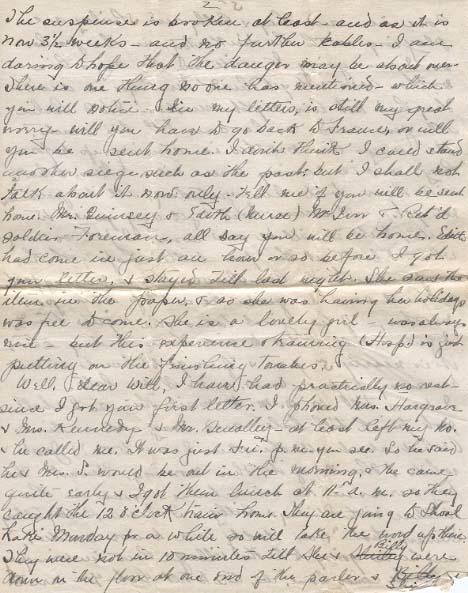 2
The suspense is broken at least - and as it is
now 3½ weeks - and no further kables - I am
daring to hope that the danger may be about over.
There is one thing no one has mentioned - which
you will notice - in my letters, is still my great
worry - will you have to go back to France, or will
you be sent home. I don't think I could stand
another siege such as the past, but I shall not
talk about it now only - tell me if you will be sent
home. Mr. Quinsey & Edith (nurse) & Ret'd
soldier Foreman, all say you will be home. Edith
had come in just an hour or so before I got
your letter, & stayed till last night. She saw the
item in the paper, & as she was having her holidays
was free to come. She is a lovely girl - was always
nice - but this experience & training (Hosp.) is just
putting on the finishing touches.
Well, dear Will, I have had practically no rest
since I got your first letter. I phoned Mrs. Hargrave
& Mrs. Kennedy & Mr. Smalley - at least left my No.
& he called me. It was just Fri. p.m. you see. So he said
he & Mrs. S. would be out in the morning, & they came
quite early & I got them lunch at 11 a.m. so they
caught the 12 o'clock train home. They are going to Shoal
Lake Monday for a while so will take the word up there.
They were not in 10 minutes till she & Billy were
down on the floor at one end of the parlor & Billy